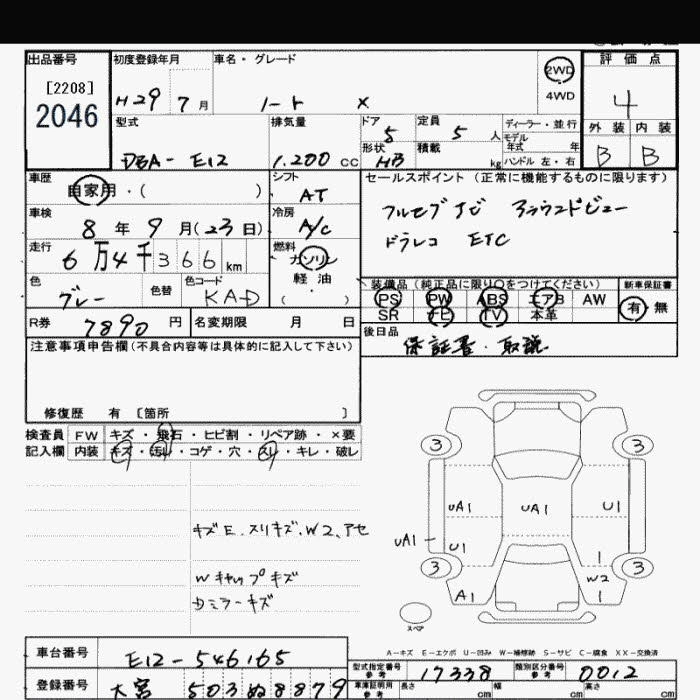 出品番号
[2208]
2046
初度登録年月
H29 7月
車名・グレード
ノート X
2WD
4WD
評価点
4
外装 内装
B B
型式
DBA-E12
排気量
1.200 CC
ドア
5
形状
HB
定員
5人
積載
kg
ディーラー・並行
モデル
年式 年
ハンドル 左・右
車歴
自家用・( )
シフト
AT
セールスポイント (正常に機能するものに限ります)
フルセグナビ アラウンドビュー
ドラレコ ETC
車検
8年9月(23日)
冷房
A/C
走行
6万4千366km
燃料
ガソリン
軽油
( ・ )
色
グレー
色替
色コード
KAD
装備品(純正品に限り○をつけてください)
PS PW ABS エアB AW
SR ナビ TV 本革
新車保証書
有 無
R券
7890円
名変期限 月 日
後日品
保証書・取説
注意事項申告欄(不具合内容等は具体的に記入して下さい)
修復歴 有 [箇所 ]
検査員
記入欄
FW キズ・飛石・ヒビ割・リペア跡・×要
内装 キズ・汚れ・コゲ・穴・スレ・キレ・破レ
キズE.スリキズ.W2、アセ
Wキャップキズ
ミラーキズ
3 3
UA1 UA1 U1
UA1 U1 1
3 W2 3
A1 1
スペア
A-キズ E-エクボ U-凹み W-補修跡 S-サビ C-腐食 XX-交換済
車台番号
E12-546165
型式指定番号
参考
17338
類別区分番号
参考
0012
登録番号
大宮 503 ぬ 8879
車庫証明用
参考
長さ cm 幅 cm 高さ cm